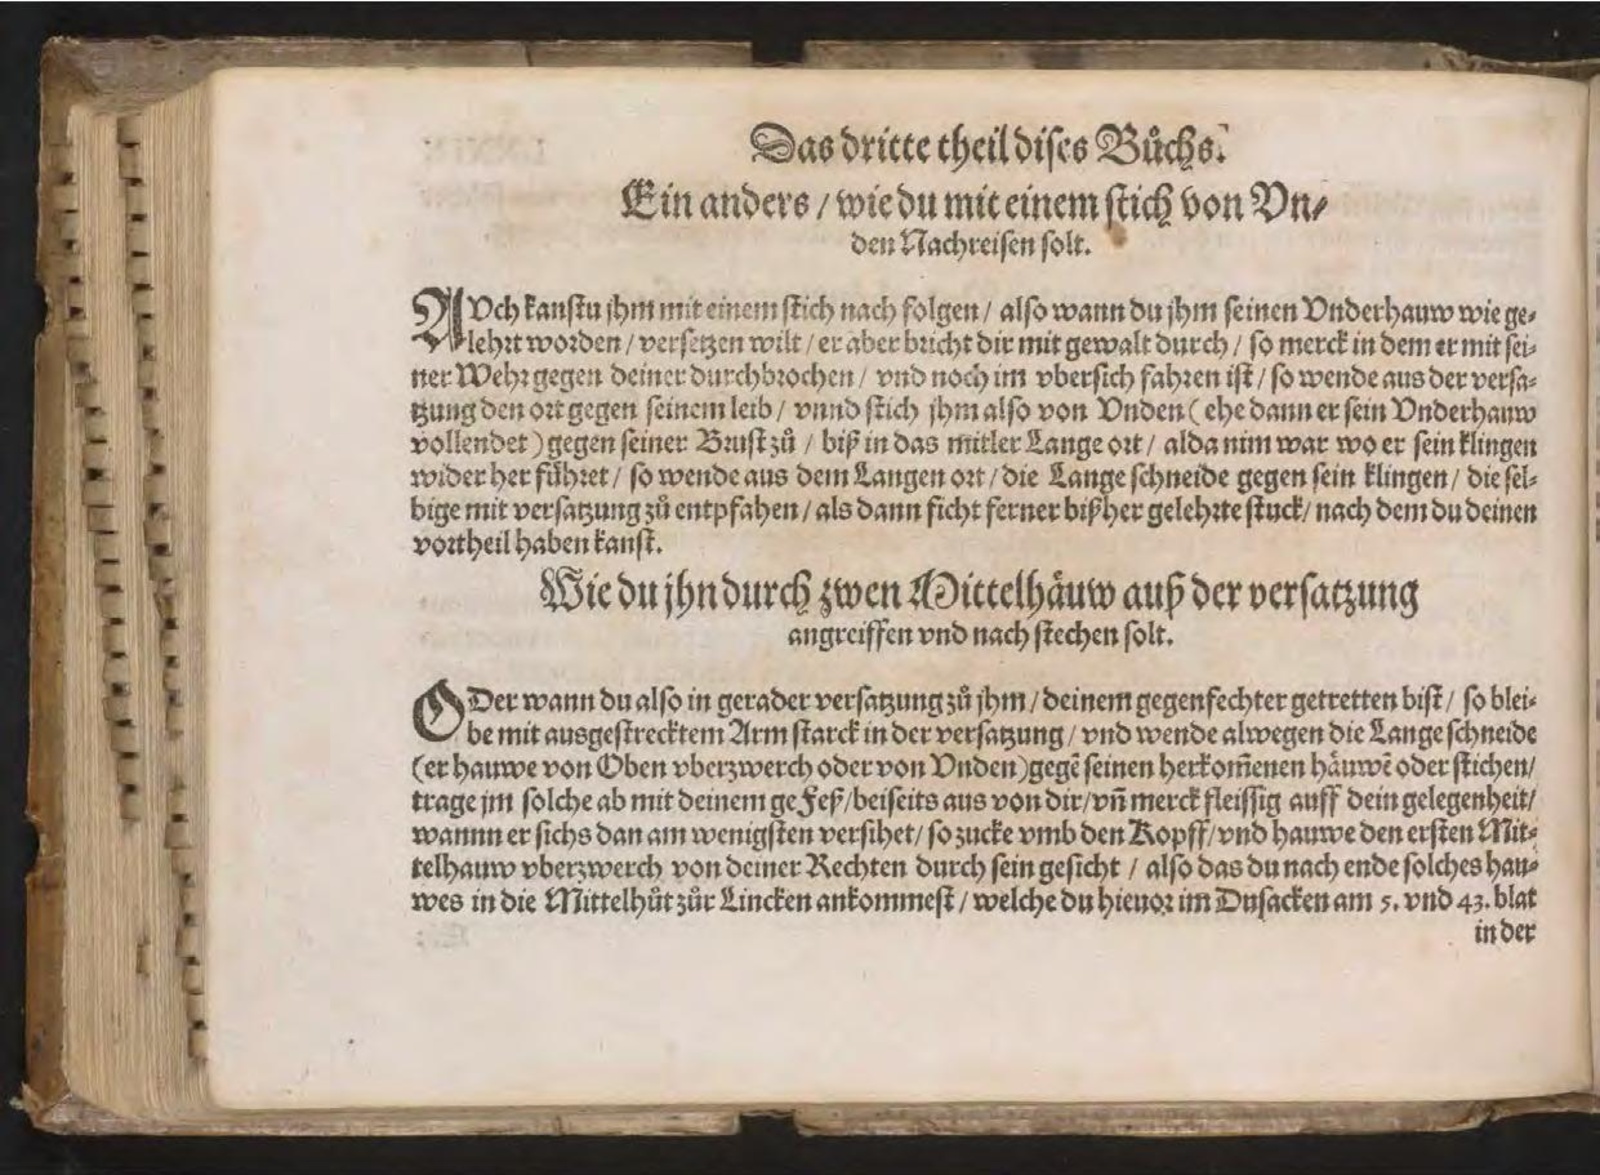 Das dritte theil dises Bůchs.
Ein anders / wie du mit einem stich von Vn⸗
den Nachreisen solt.
AVch kanstu jhm mit einem stich nach folgen / also wann du jhm seinen Vnderhauw wie ge⸗
lehrt worden / versetzen wilt / er aber bricht dir mit gewalt durch / so merck in dem er mit sei⸗
ner Wehr gegen deiner durchbrochen / vnd noch im vbersich fahren ist / so wende aus der versa⸗
tzung den ort gegen seinem leib / vnnd stich jhm also von Vnden ( ehe dann er sein Vnderhauw
vollendet ) gegen seiner Brust zů / biß in das mitler Lange ort / alda nim war wo er sein klingen
wider her fůhret / so wende aus dem Langen ort / die Lange schneide gegen sein klingen / die sel⸗
bige mit versatzung zů entpfahen / als dann ficht ferner bißher gelehrte stuck / nach dem du deinen
vortheil haben kanst.
Wie du jhn durch zwen Mittelhåuw auß der versatzung
angreiffen vnd nach stechen solt.
ODer wann du also in gerader versatzung zů jhm / deinem gegenfechter getretten bist / so blei⸗
be mit ausgestrecktem Arm starck in der versatzung / vnd wende alwegen die Lange schneide
(er hauwe von Oben vberzwerch oder von Vnden) gegē seinen herkom̃enen håuwē oder stichen /
trage jm solche ab mit deinem geFeß / beiseits aus von dir / vñ merck fleissig auff dein gelegenheit /
wannn er sichs dan am wenigsten versihet / so zucke vmb den Kopff / vnd hauwe den ersten Mit⸗
telhauw vberzwerch von deiner Rechten durch sein gesicht / also das du nach ende solches hau⸗
wes in die Mittelhůt zůr Lincken ankommest / welche du hieuor im Dusacken am 5. vnd 43. blat
in der